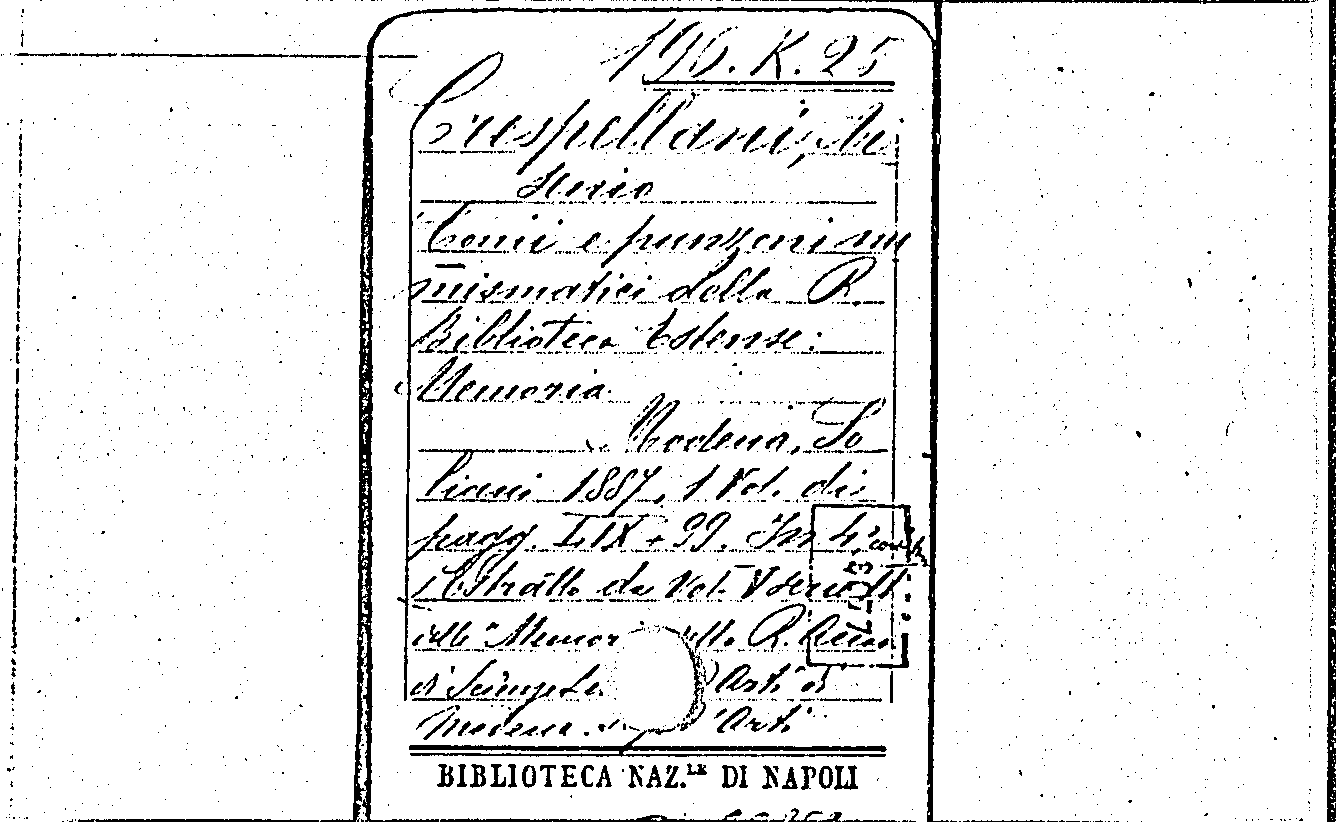 196. K. 25
Crespellani, Ar
senio
Conii e punzoni nu
mismatici della R.
Biblioteca Estense:
Memoria
Modena, So
liani 1887, 1 Vol. di
pagg. LIX + 99. In 4°
Estratto da Vol. V serie II
delle Memor R.
di Scienze Le Arti di
Modena. Arti
BIBLIOTECA NAZ.LE DI NAPOLI